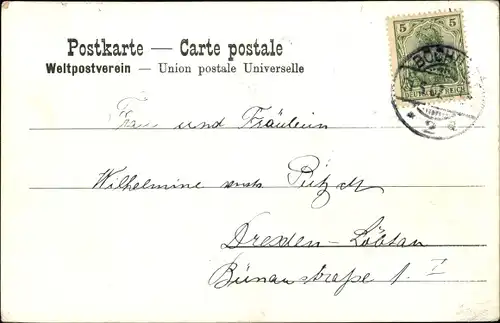 Postkarte — Carte postale
Weltpostverein — Union postale Universelle
5 5
DEUTSCHES REICH
BOCH
* 2 *
Frau und Fräulein
Wilhelmine
Dresden-Löbtau
Bünaustraße 1. I